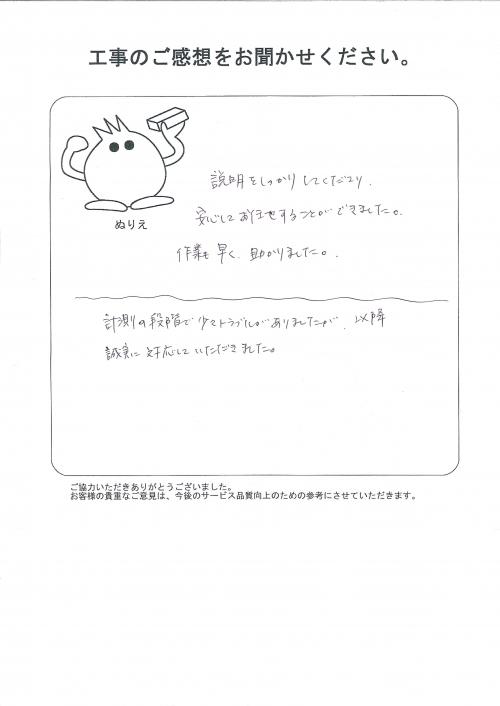 工事のご感想をお聞かせください。
説明をしっかりしてくださり、
安心してお任せすることができました。
作業も早く、助かりました。
ぬりえ
計測の段階で少々トラブルがありましたが、以降
誠実に対応していただきました。
ご協力いただきありがとうございました。
お客様の貴重なご意見は、今後のサービス品質向上のための参考にさせていただきます。